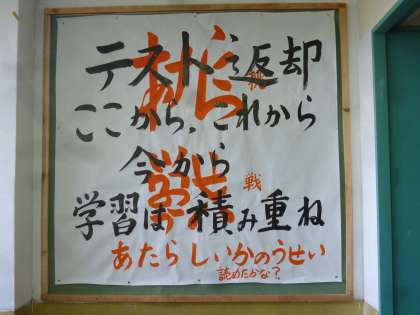 テスト返却
ここから、これから
今から
戦
学習は積み重ね
あたらしいかのうせい
読めたかな?